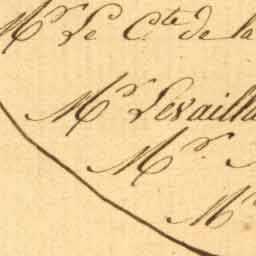 Mr Le Cte de la
Mr Levailla
Mr.
Mr